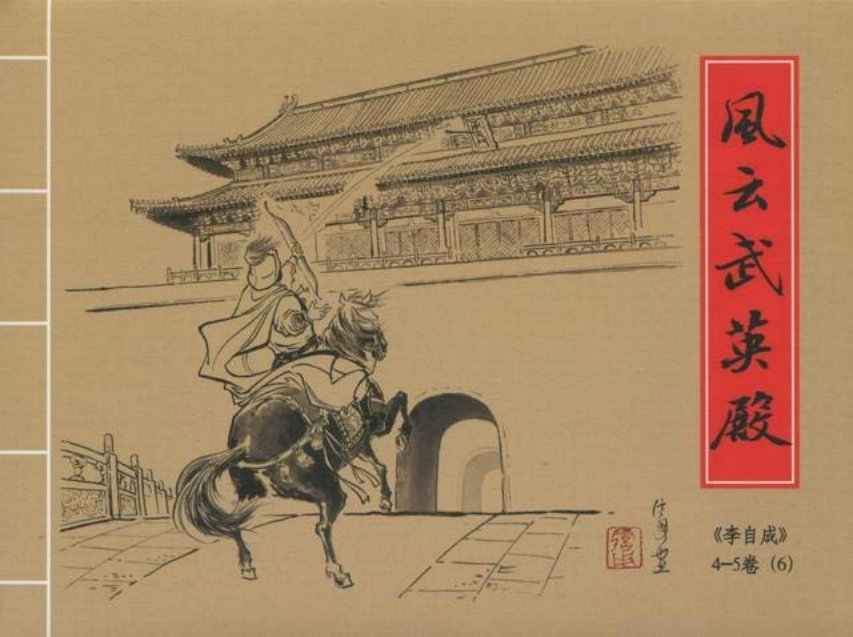 風云武英殿
《李自成》
4—5卷（6）